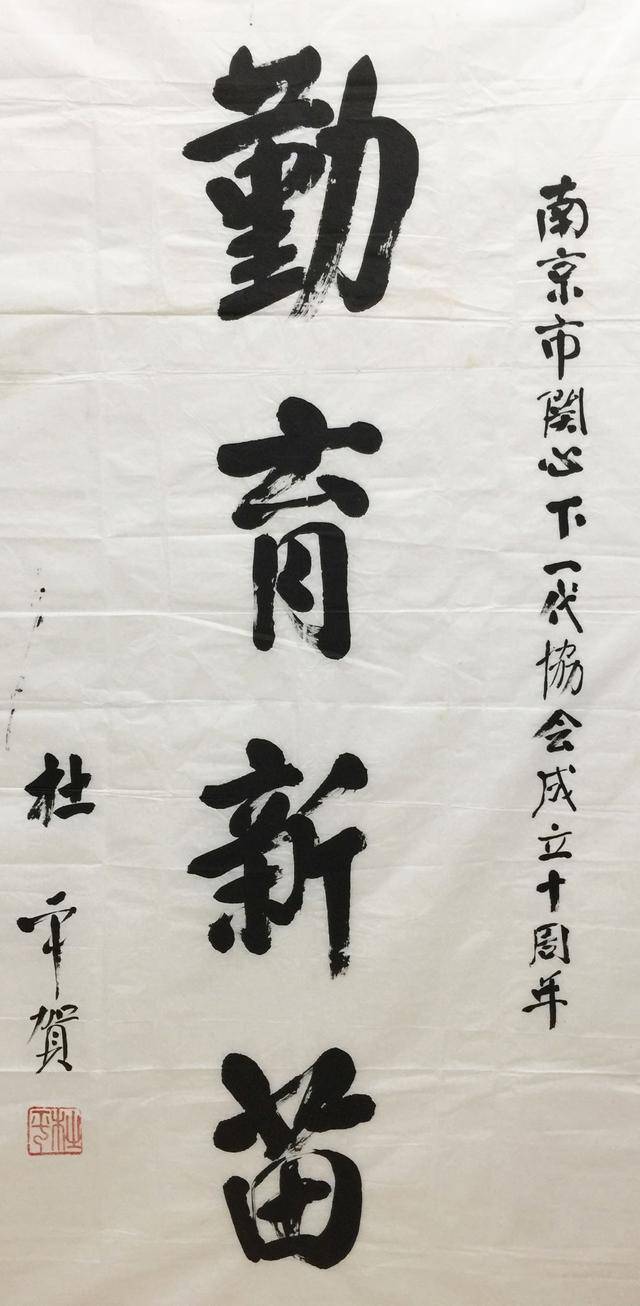 南京市関心下一代協会成立十周年
勤育新苗
杜平賀
杜平